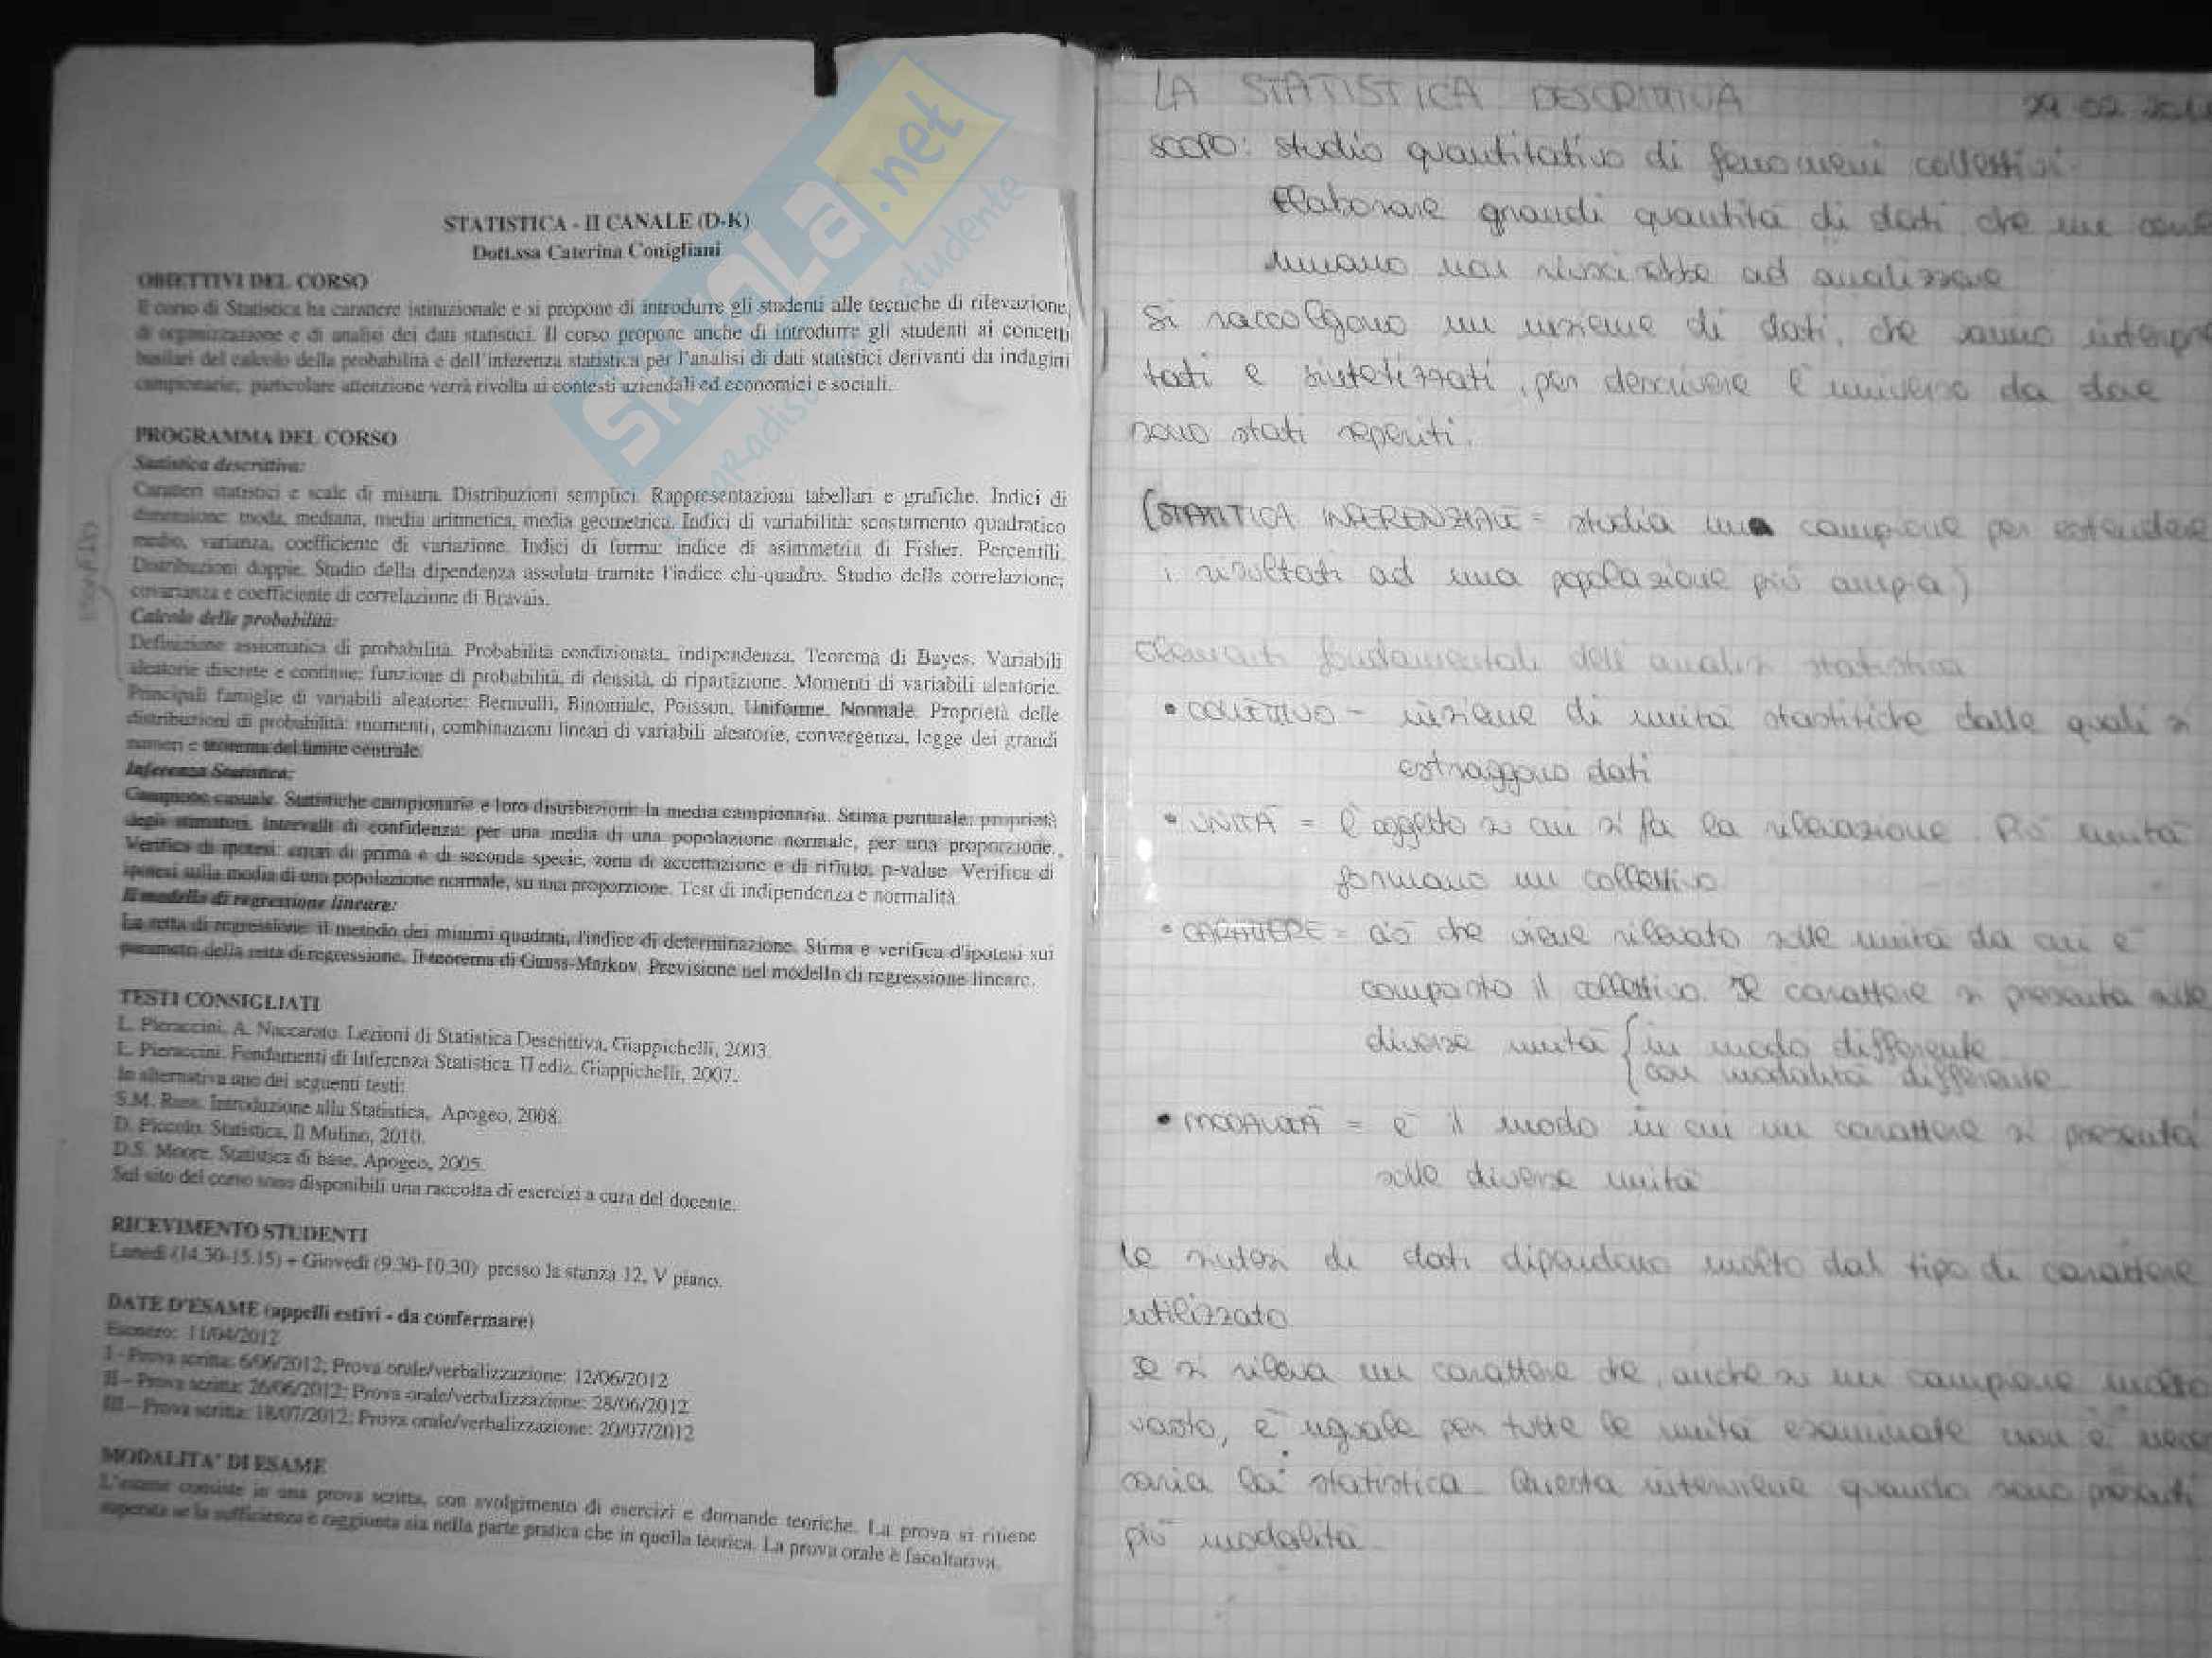 STATISTICA - II CANALE (D-K)
Dott.ssa Caterina Conigliani
OBIETTIVI DEL CORSO
Il corso di Statistica ha carattere istituzionale e si propone di introdurre gli studenti alle tecniche di rilevazione,
di organizzazione e di analisi dei dati statistici. Il corso propone anche di introdurre gli studenti ai concetti
basilari del calcolo della probabilità e dell'inferenza statistica per l'analisi di dati statistici derivanti da indagini
campionarie; particolare attenzione verrà rivolta ai contesti aziendali ed economici e sociali.
PROGRAMMA DEL CORSO
Statistica descrittiva:
Caratteri statistici e scale di misura. Distribuzioni semplici. Rappresentazioni tabellari e grafiche. Indici di
dimensione: moda, mediana, media aritmetica, media geometrica. Indici di variabilità: scostamento quadratico
medio, varianza, coefficiente di variazione. Indici di forma: indice di asimmetria di Fisher. Percentili.
Distribuzioni doppie. Studio della dipendenza assoluta tramite l'indice chi-quadro. Studio della correlazione;
covarianza e coefficiente di correlazione di Bravais.
Calcolo delle probabilità:
Definizione assiomatica di probabilità. Probabilità condizionata, indipendenza, Teorema di Bayes. Variabili
aleatorie discrete e continue; funzione di probabilità, di densità, di ripartizione. Momenti di variabili aleatorie.
Principali famiglie di variabili aleatorie: Bernoulli, Binomiale, Poisson, Uniforme, Normale. Proprietà delle
distribuzioni di probabilità: momenti, combinazioni lineari di variabili aleatorie, convergenza, legge dei grandi
numeri e teorema del limite centrale.
Inferenza Statistica:
Campione casuale. Statistiche campionarie e loro distribuzioni: la media campionaria. Stima puntuale; proprietà
degli stimatori. Intervalli di confidenza: per una media di una popolazione normale, per una proporzione.
Verifica di ipotesi: errori di prima e di seconda specie, zona di accettazione e di rifiuto, p-value. Verifica di
ipotesi sulla media di una popolazione normale, su una proporzione. Test di indipendenza e normalità.
Il modello di regressione lineare:
La retta di regressione: il metodo dei minimi quadrati, l'indice di determinazione. Stima e verifica d'ipotesi sui
parametri della retta di regressione. Il teorema di Gauss-Markov. Previsione nel modello di regressione lineare.
TESTI CONSIGLIATI
L. Pieraccini, A. Naccarato. Lezioni di Statistica Descrittiva, Giappichelli, 2003.
L. Pieraccini. Fondamenti di Inferenza Statistica. II ediz. Giappichelli, 2007.
In alternativa uno dei seguenti testi:
S.M. Ross. Introduzione alla Statistica, Apogeo, 2008.
D. Piccolo. Statistica, Il Mulino, 2010.
D.S. Moore. Statistica di base, Apogeo, 2005.
Sul sito del corso sono disponibili una raccolta di esercizi a cura del docente.
RICEVIMENTO STUDENTI
Lunedì (14.30-15.15) + Giovedì (9.30-10.30) presso la stanza 12, V piano.
DATE D'ESAME (appelli estivi - da confermare)
Esonero: 11/04/2012
I - Prova scritta: 6/06/2012; Prova orale/verbalizzazione: 12/06/2012
II - Prova scritta: 26/06/2012; Prova orale/verbalizzazione: 28/06/2012
III - Prova scritta: 18/07/2012; Prova orale/verbalizzazione: 20/07/2012
MODALITA' DI ESAME
L'esame consiste in una prova scritta, con svolgimento di esercizi e domande teoriche. La prova si ritiene
superata se la sufficienza è raggiunta sia nella parte pratica che in quella teorica. La prova orale è facoltativa.
SKUOLa.net
studente
LA STATISTICA DESCRITTIVA
SCOPO: studio quantitativo di fenomeni collettivi.
Elaborare grandi quantità di dati che
umano non riuscirebbe ad analizzare
Si raccolgono un insieme di dati, che vanno interpre
tati e sintetizzati, per descrivere l'universo da dove
sono stati reperiti.
(STATITICA INFERENZIALE = studia un campione per estendere
i risultati ad una popolazione più ampia)
Elementi fondamentali dell'analisi statistica
• COLLETTIVO - insieme di unità stastitiche dalle quali si
estraggono dati
• UNITÀ = l'oggetto su cui si fa la rilevazione. Più unità
formano un collettivo
• CARATTERE = ciò che viene rilevato sulle unità da cui è
composto il collettivo. Il carattere si presenta sulle
diverse unità { in modo differente
con modalità differente
• MODALITÀ = è il modo in cui un carattere si presenta
sulle diverse unità
Le sintesi di dati dipendono molto dal tipo di carattere
utilizzato
Se si rileva un carattere che, anche su un campione molto
vasto, è uguale per tutte le unità esaminate non è neces
saria la statistica. Questa interviene quando sono presenti
più modalità